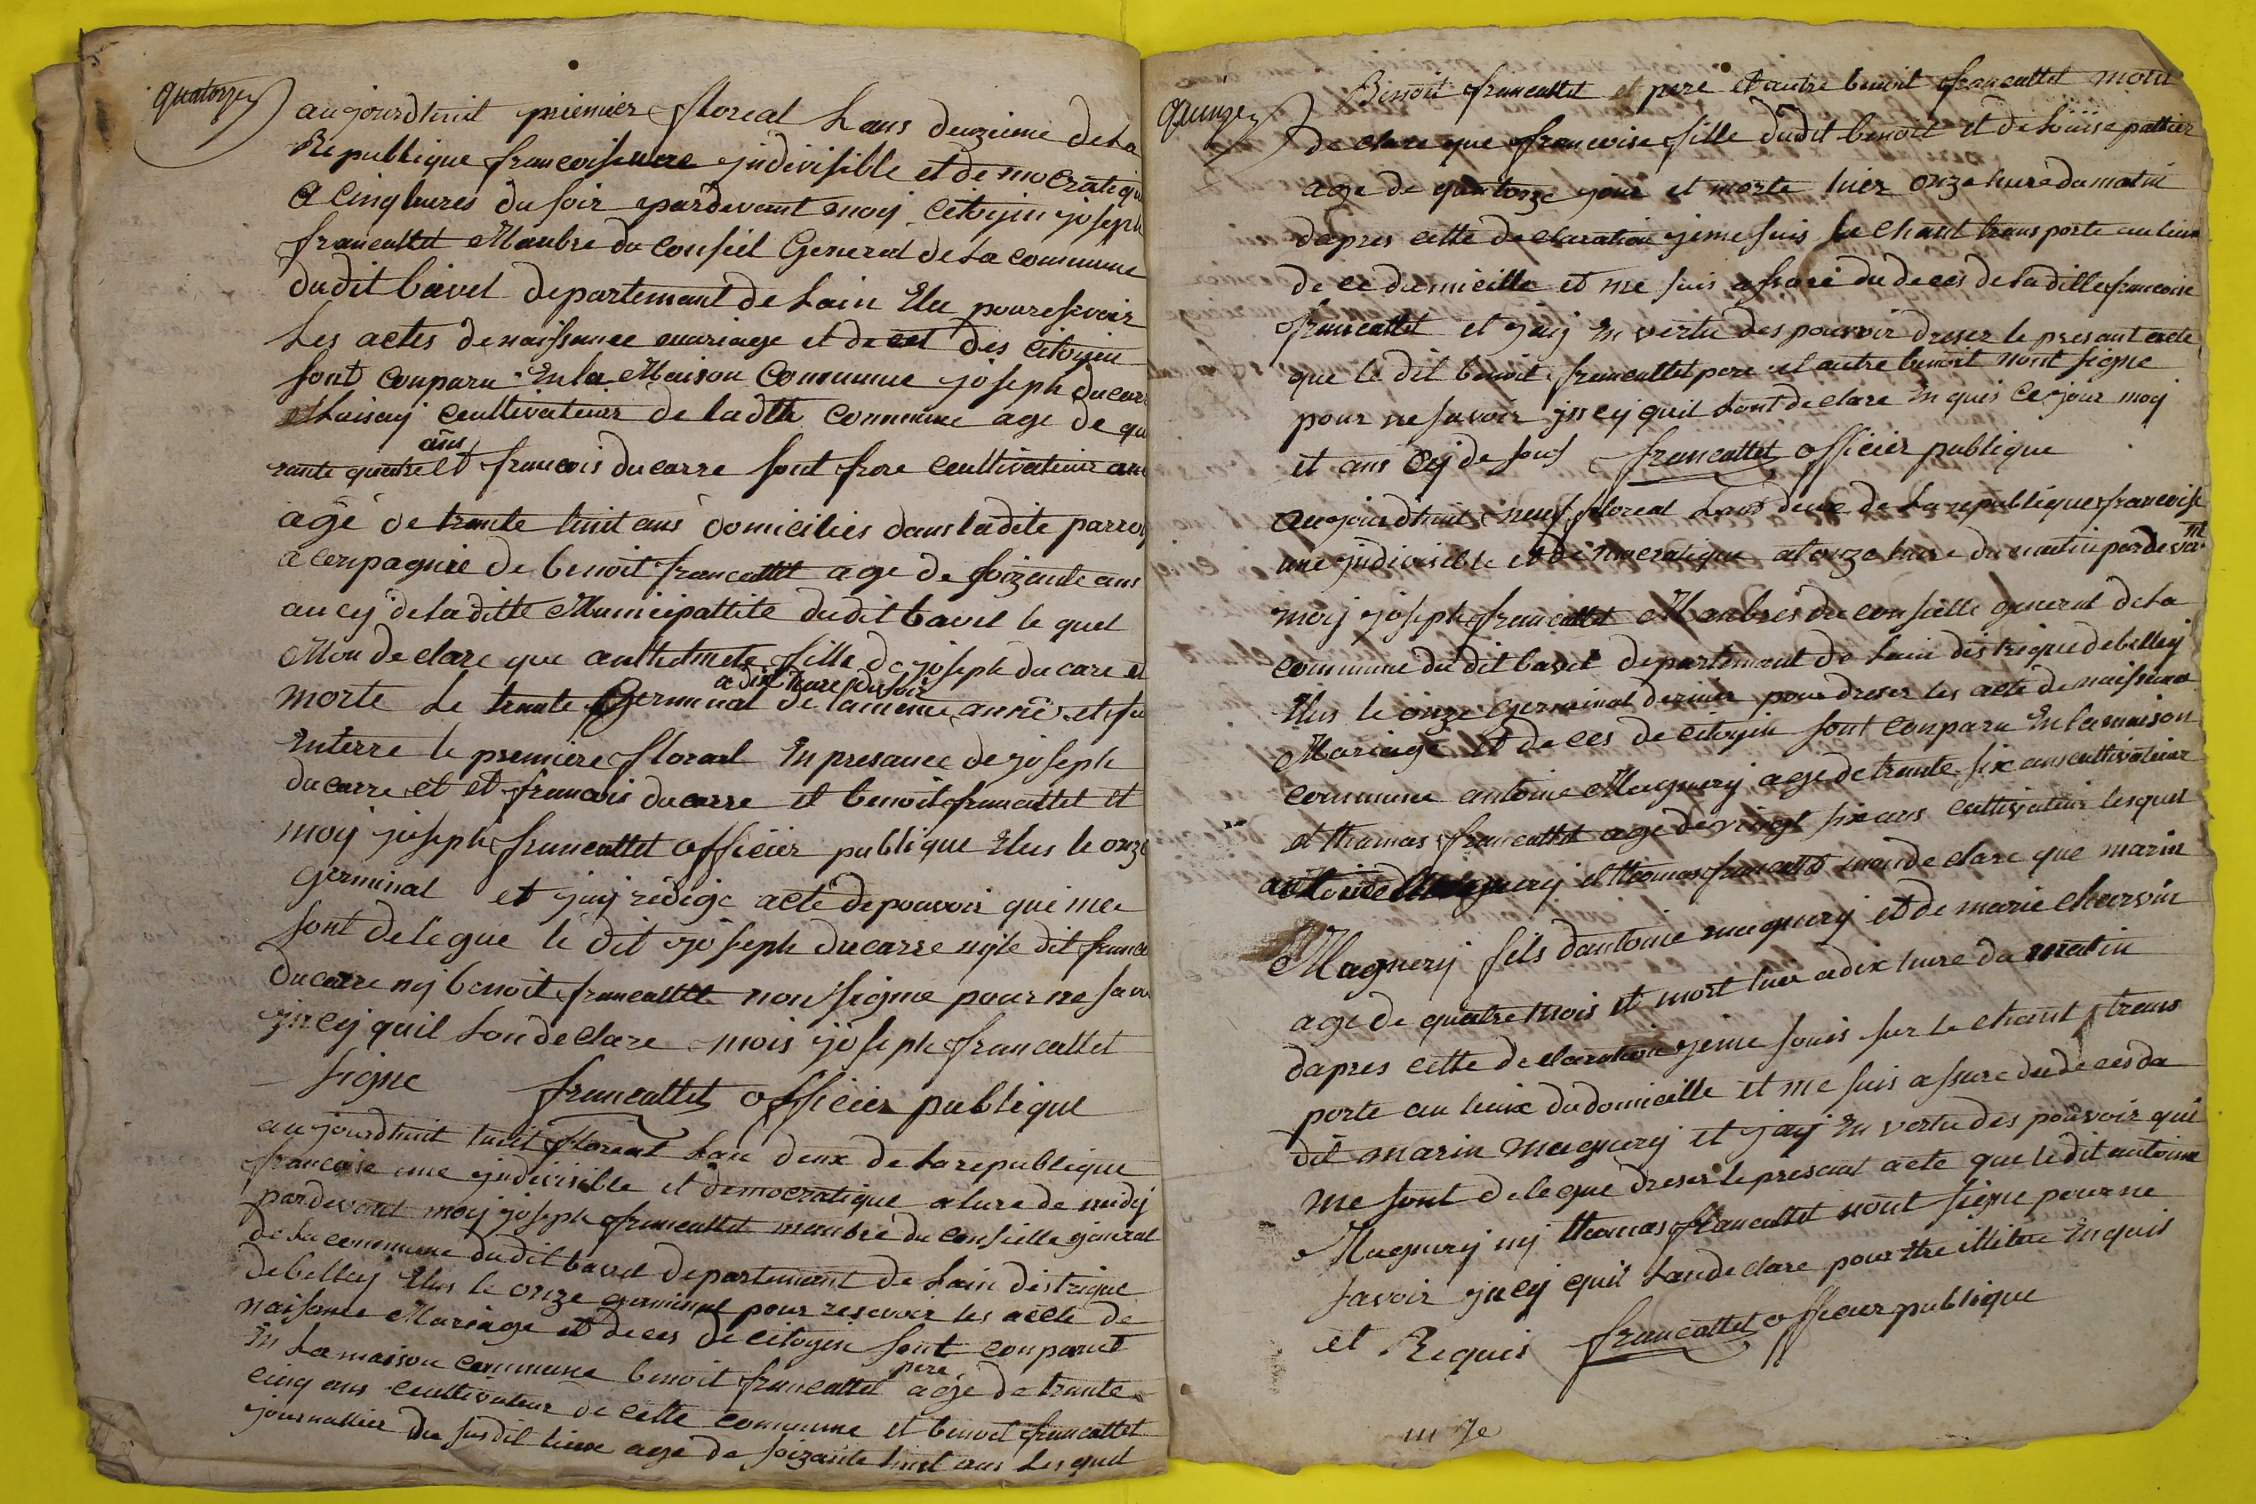 quatorze
aujourdhuit priemier floreal Lans deuzieme de La
Republique francoise une yndivisible et democratiqu
a Cinq hures du soir pardevant moy Citoyin joseph
francallet Manbre du Conseil General de La commune
dudit bavel departemant de Lain Elu pour reservoir
Les actes de naissance mariage et de ces des Citoyin
sont conparu En la Maison Commune joseph ducarr
cultivateur de ladtte commune age de qua
rante quatre ans et francois ducarre sont frere cultivateur
age de trante huit ans domicilies dans la dite parroy
a conpagnie de benoit francallet age de soizante ans
aucy de la ditte Municipallite dudit bavel le quel
Mon declare que fille de joseph ducare et
a dix hure du soir
morte Le trante Germinal de la meme anné et fu
Enterre le premiere floreal En presance de joseph
ducarre et et francois ducarre et benoit francallet et
moy joseph francallet officier publique Elus le onze
Germinal et jay redige acte de pouvoir que me
sont delegue le dit joseph ducarre ny le dit francoi
ducarre ny benoit francallet non signe pour ne savoi
yncy quil Lon declare mois joseph francallet
signe francallet officier publique
aujourdhuit huit floreal Lan deux de La republique
francaise une yndivisible et democratique a lure de midy
pardevant moy joseph francallet manbre du conseille general
de La commune dudit bavel departemant de Lain distrique
de belley Elus le onze germinal pour resevoir les acte de
naisance Mariage et deces de citoyin sont conparut
En La maison commune benoit francallet pere age de trante
cinq ans cultivateur de cette commune et benoit francallet
journallier du susdit lieux age de soizante huit ans Lesquel
quinze
Benoit francallet et pere et autre benoit francallet mont
declare que francoise fille dudit benoit et de Louise pallier
age de quatorze jour et morte hier onze hure du matin
dapres cette declaration jeme suis su Chant transporte au lieux
de ce domicille et me suis assure du deces de la ditte francoise
francallet et jay En vertu des pouvoir dreser le presant acte
que le dit benoit francallet pere et autre benoit nont signe
pour ne savoir yncy quil Lont declare En quis ce jour moy
et ans Cy desous francallet officier publique
aujourdhuit neuf floreal Lans deux de La republique francoise
une yndivisible et democratique a onze hure du matin pardevant
moy joseph francallet Manbres du conseille general de La
commune dudit bavel departemant de Lain distrique de belley
Elus le onze germinal dernier pour dreser les acte de naissance
Mariage et de ces de citoyin sont conparu En la maison
commune antoine Magnery age de trante six ans cultivateur
et thomas francallet age de vingt six ans cultivateur lesquel
antoine Magnery et thomas francallet mon declare que marin
Magnery fils dantoine magnery et de marie chervin
age de quatre mois et mort hier a dix hure du matin
dapres cette declaration jeme souis sur le chant trans
porte au lieux du domicille et me suis assure du deces du
dit marin magnery et jay En vertu des pouvoir qui
me sont delegue dreser le presant acte que le dit antoine
Magnery ny thomas francallet nont signe pour ne
savoir yncy quil Lan declare pour Etre En quis
et Requis francallet officier publique